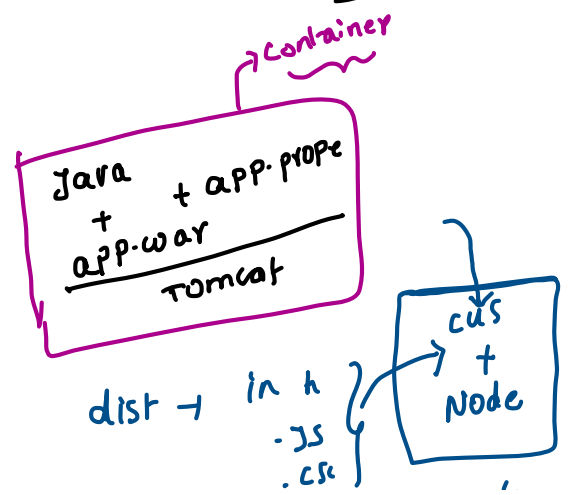 container
Java
+ + app.prope
app.war
Tomcat
cus
+
Node
dist → in h
.JS
.csc